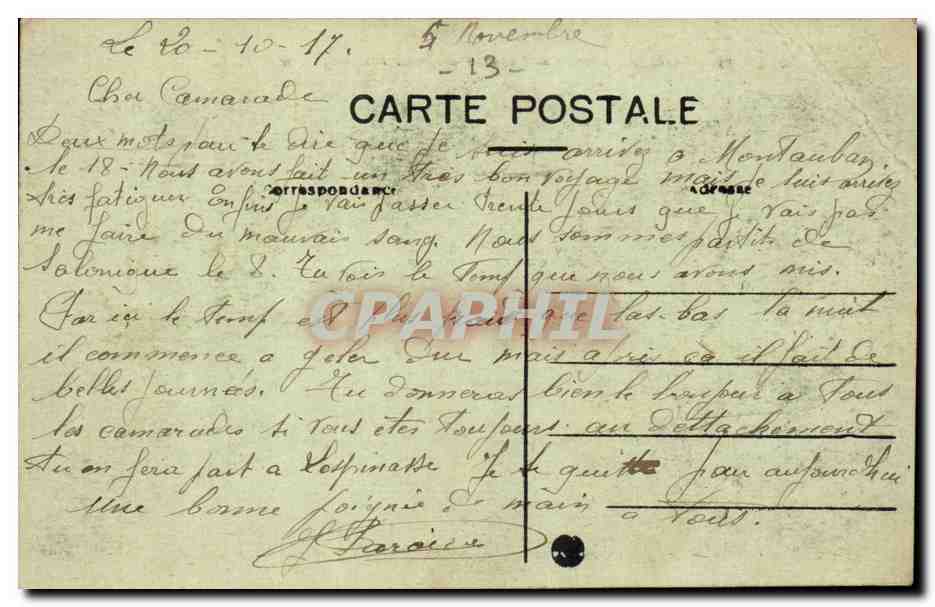 Le 20-10-17. 5 Novembre
-13-
Cher Camarade
CARTE POSTALE
Deux mots pour te dire que je suis arrivez a Montauban
le 18- Nous avons fait un Tres bon voyage mais je suis arrivez
Correspondance Adresse
très fatiguer Enfin je vais passer Trente jours que je vais pas
me faire du mauvais sang. Nous sommes partit de
Salonique le 8. Tu vois le Temp que nous avons mis.
Par ici le temp est plus frais que las-bas la nuit
CPAPHIL
il commence a geler dur mais apres ça il fait de
belles journées. Tu donneras bien le bonjour a Tous
les camarades si vous êtes Toujours au dettachement
Tu en fera part a Lespinasse Je te quitte pour aujourd'hui
Une bonne poignie de main a Vous.